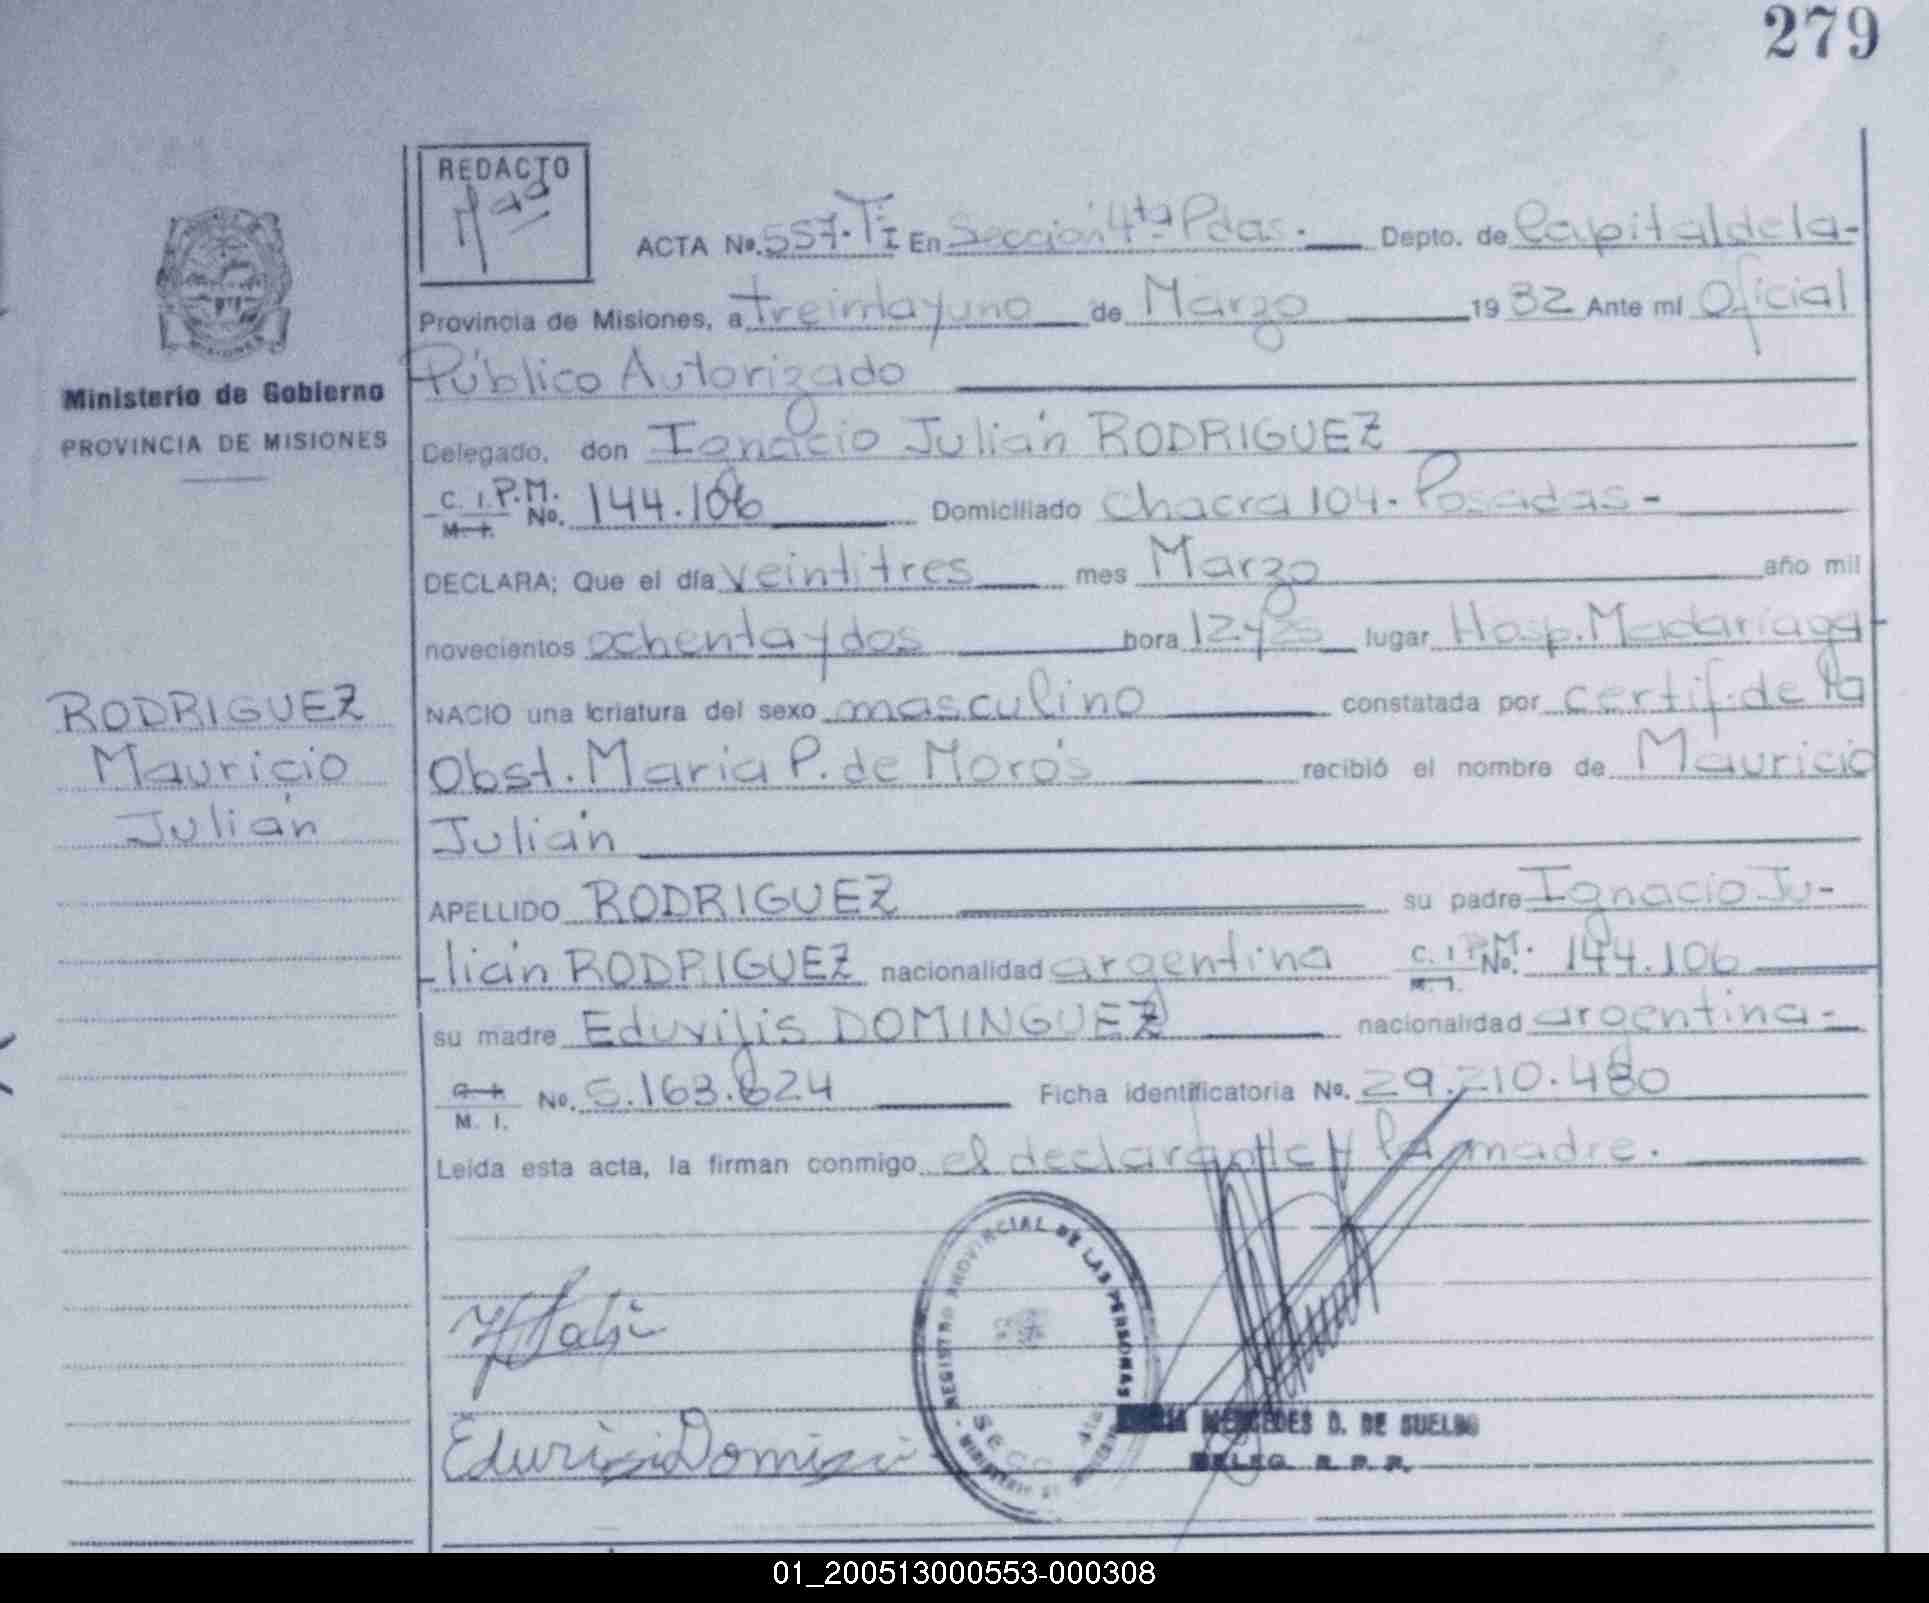 279
REDACTO
ACTA No. 557. TI En Sección 4ta Pdas. Depto. de Capital de la-
Provincia de Misiones, a treinta y uno de Marzo 1982 Ante mí Oficial
Público Autorizado
Ministerio de Gobierno
PROVINCIA DE MISIONES
Delegado, don Ignacio Julián RODRIGUEZ
C. I. P.M. M. I. No. 144.106 Domiciliado Chacra 104. Posadas-
DECLARA; Que el día veintitres mes Marzo año mil
novecientos ochenta y dos hora 12 y 25 lugar Hosp. Madariaga
NACIO una criatura del sexo masculino constatada por certif. de la
Obst. Maria P. de Morós recibió el nombre de Mauricio
Julián
APELLIDO RODRIGUEZ su padre Ignacio Ju-
lián RODRIGUEZ nacionalidad argentina C. I. P.M. M. I. No. 144.106
su madre Eduvijis DOMINGUEZ nacionalidad argentina-
C. I. M. I. No. 5.163.624 Ficha identificatoria No. 29.210.480
Leída esta acta, la firman conmigo el declarante y la madre.
RODRIGUEZ
Mauricio
Julián
REGISTRO PROVINCIAL DE LAS PERSONAS
MERCEDES D. DE SUELDO
DELEG. R. P. P.
01_200513000553-000308